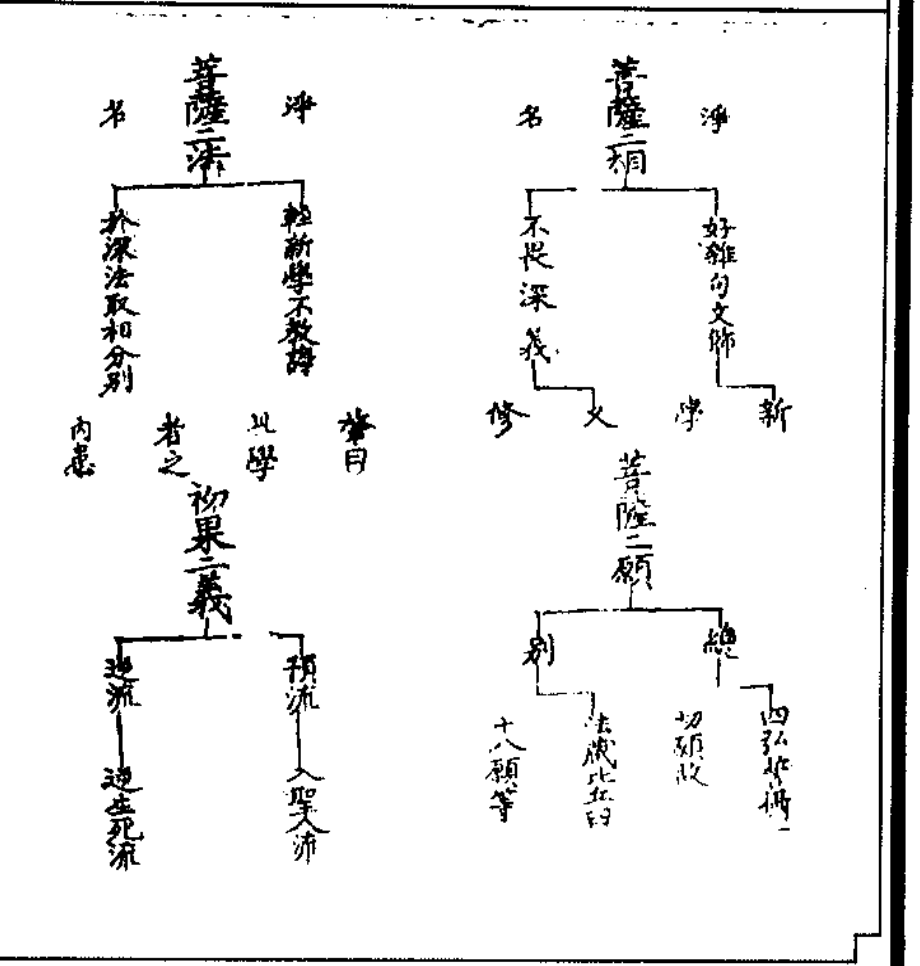 淨
菩薩二相
名
好雜句文飾
新
學
不畏深義
久
修
菩薩二願
總
四弘能攝一
切願故
別
法藏比丘四
十八願等
淨
菩薩二法
名
輕新學不教誨
於深法取相分別
肇曰
此學
者之
內患
初果二義
預流
入聖人流
逆流
逆生死流